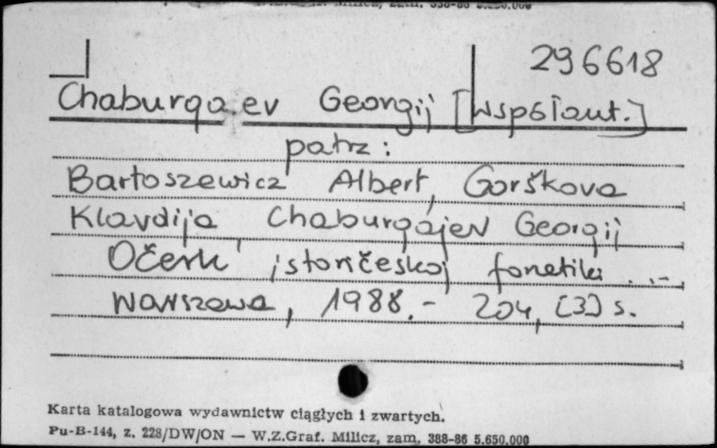 296618
Chaburgaev Georgij [współaut.]
patrz:
Bartoszewicz Albert, Gorškova
Klavdija, Chaburgajev Georgij
Očerk istoričeskoj fonetiki ...-
Warszawa, 1988.- 204, [3] s.
Karta katalogowa wydawnictw ciągłych i zwartych.
Pu-B-144, z. 228/DW/ON — W.Z.Graf. Milicz, zam. 388-86 5.650.000